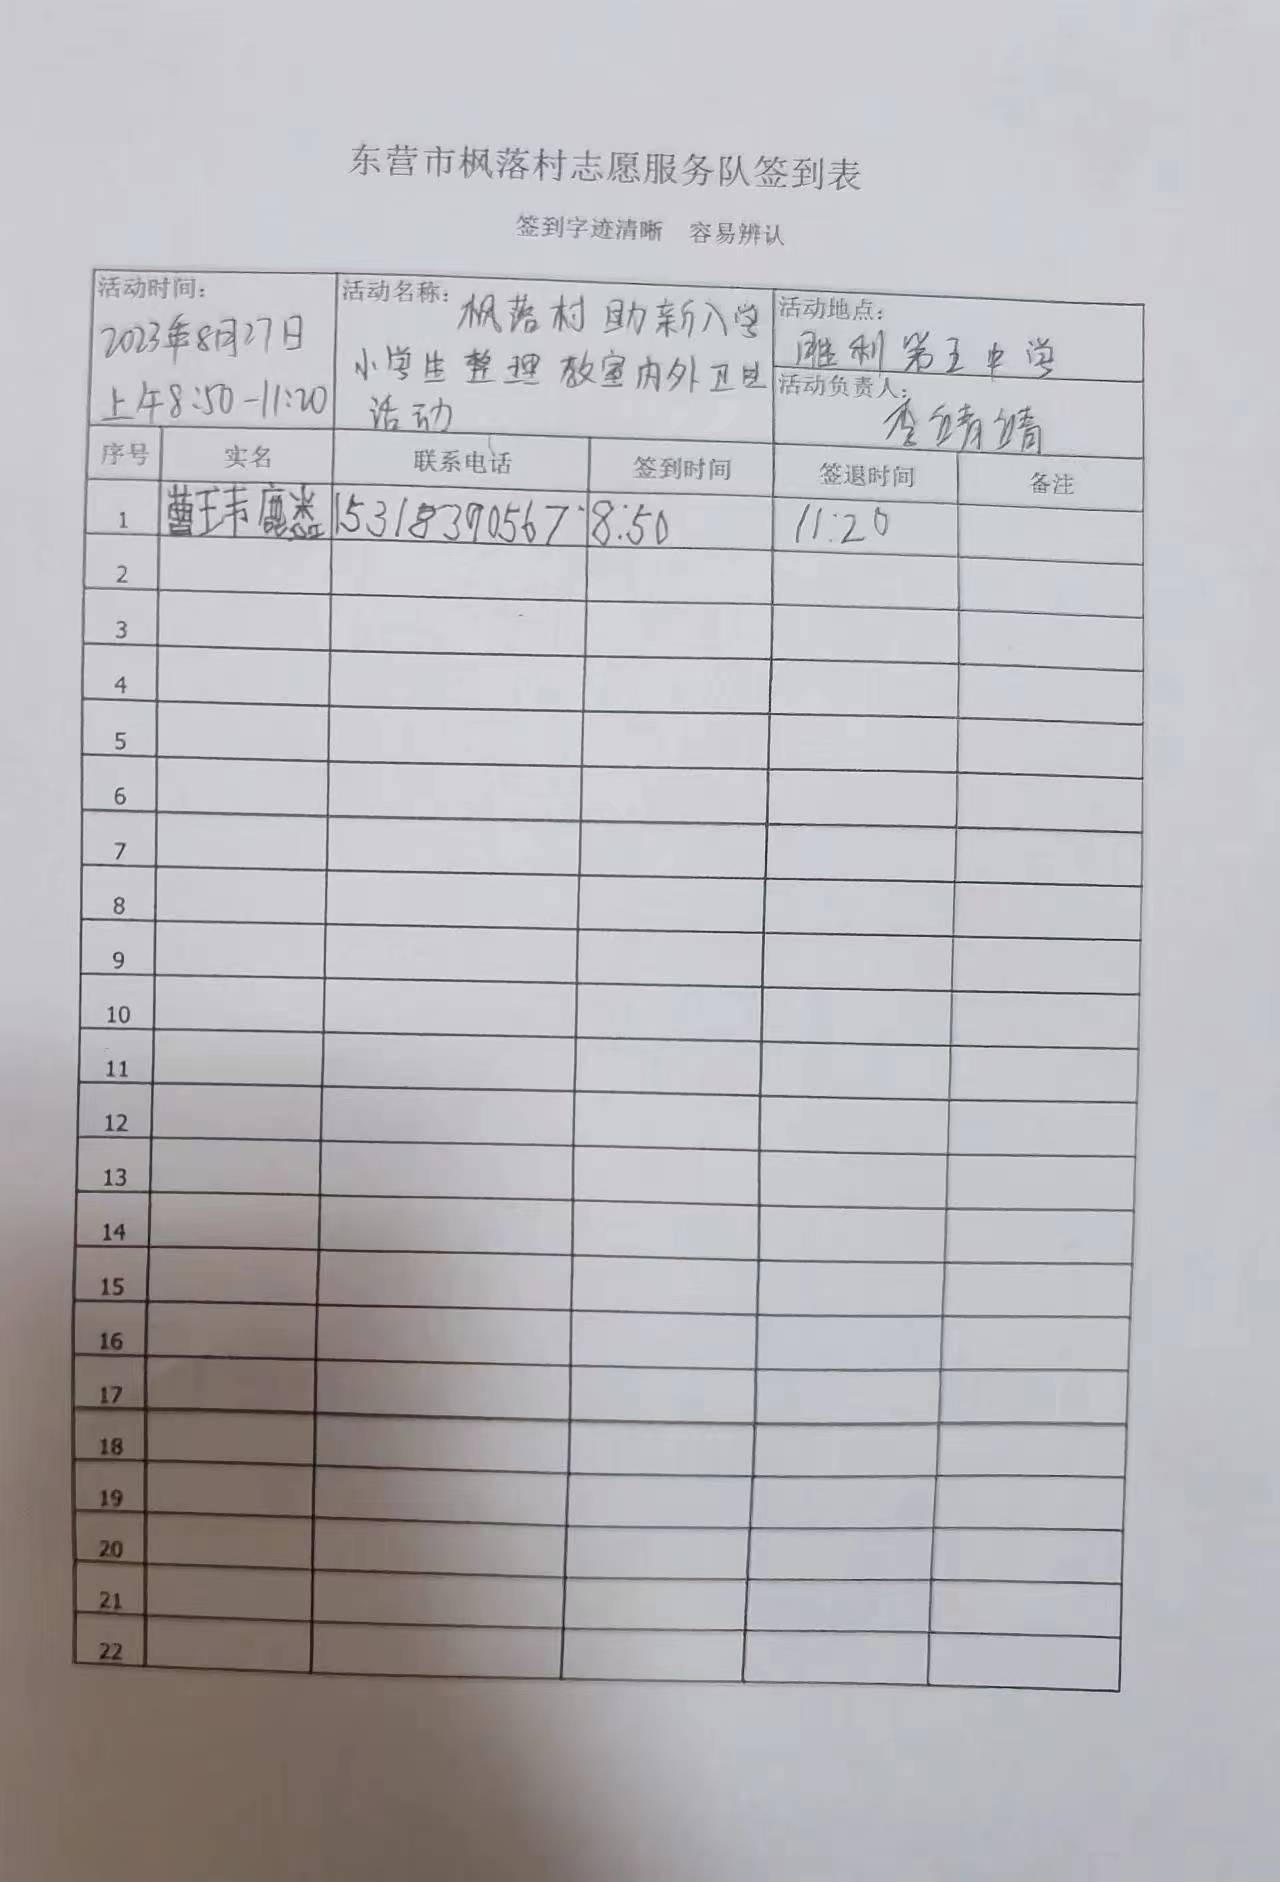 东营市枫落村志愿服务队签到表
签到字迹清晰 容易辨认
活动时间：
2023年8月27日
上午8:50-11:20
活动名称：枫落村助新入学
小学生整理教室内外卫生
活动
活动地点：
胜利第五中学
活动负责人：
李婧婧
序号 实名 联系电话 签到时间 签退时间 备注
1 曹玮 15318390567 8:50 11:20
2
3
4
5
6
7
8
9
10
11
12
13
14
15
16
17
18
19
20
21
22